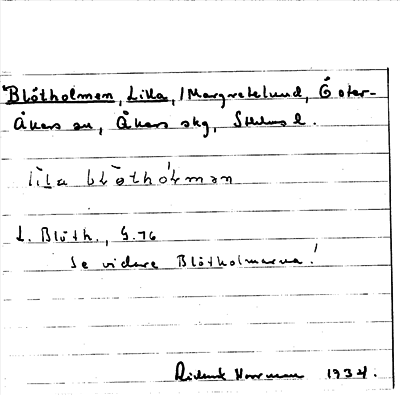 Blötholmen, Lilla, /Margretelund, Öster-
Åkers sn, Åkers skg, Sthlms l.
lìla blö̀thól̀mən
L. Blöth., G. 76
Se vidare Blötholmarna!
1934.